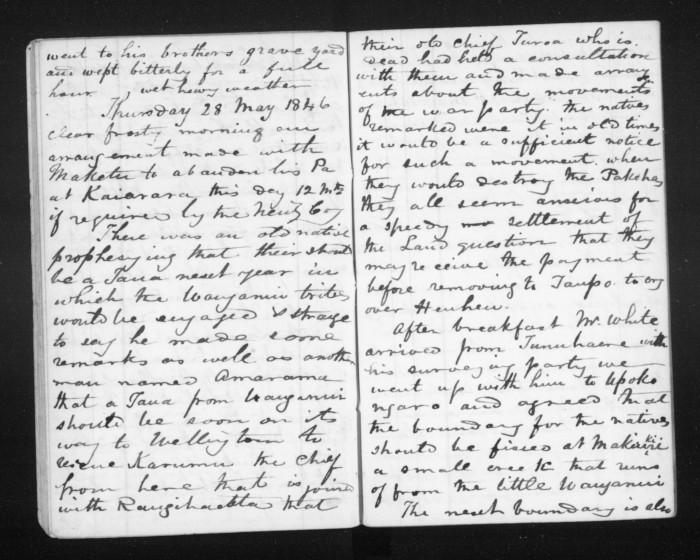 went to his brothers grave yard
and wept bitterly for a full
hour wet heavy weather
Thursday 28 May 1846
clear frosty morning an
arrangement made with
Maketu to abandon his Pa
at Kaiarara this day 12 Mths
if required by the Newz Coy
There was an old native
prophesying that their should
be a Taua next year in
which the Wanganui tribes
would be engaged & strange
to say he made some
remarks as well as another
man named Amarama
that a Taua from Wanganui
should be soon on its
way to Wellington to
rescue Karumu the chief
from here that is joined
with Rangihaeata that
their old chief Turoa who is
dead had held a consultation
with them and made arrang
ents about the movements
of the war party. the natives
remarked were it in old times
it would be a sufficient notice
for such a movement. when
they would destroy the Pakehas
they all seem anxious for
a speedy settlement of
the Land question that they
may receive the payment
before removing to Taupo to cry
over Heuheu.
After breakfast Mr. White
arrived from Tunuhaere with
his surveying party we
went up with him to Upoko
ngaro and agreed that
the boundary for the natives
should be fixed at Makirikiri
a small creek that runs
of from the little Wanganui
The next boundary is also